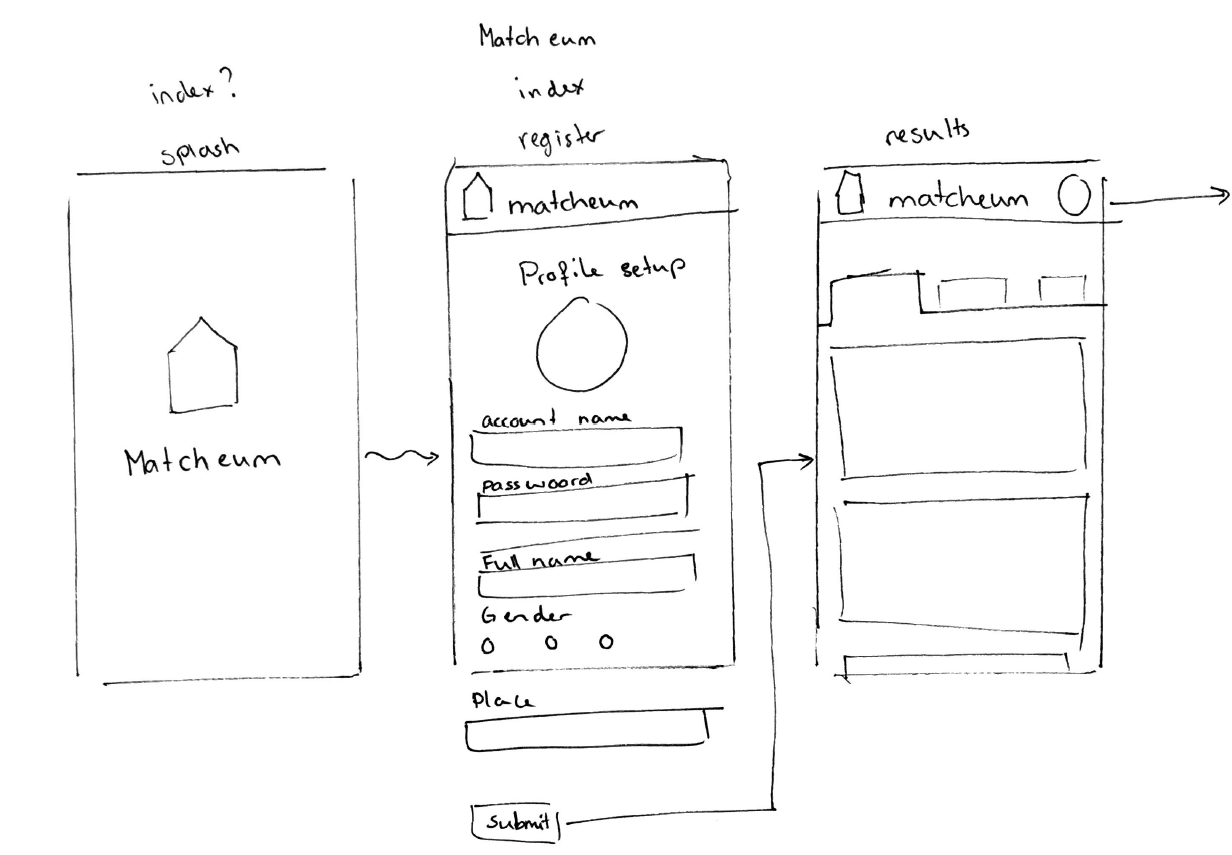 index?
splash
Matcheum
Matcheum
index
register
matcheum
Profile setup
account name
passwoord
Full name
Gender
Place
submit
results
matcheum